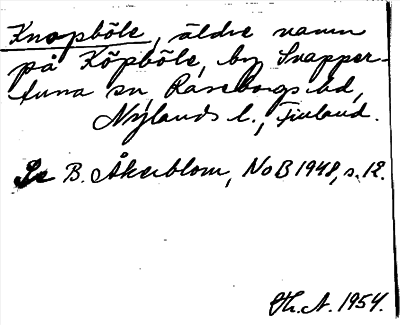 Knopböle, äldre namn
på Köpböle, by Snapper-
tuna sn, Raseborgs hd,
Nylands l., Finland.
Se B. Åkerblom, NoB 1948, s. 12.
Th. A. 1954.